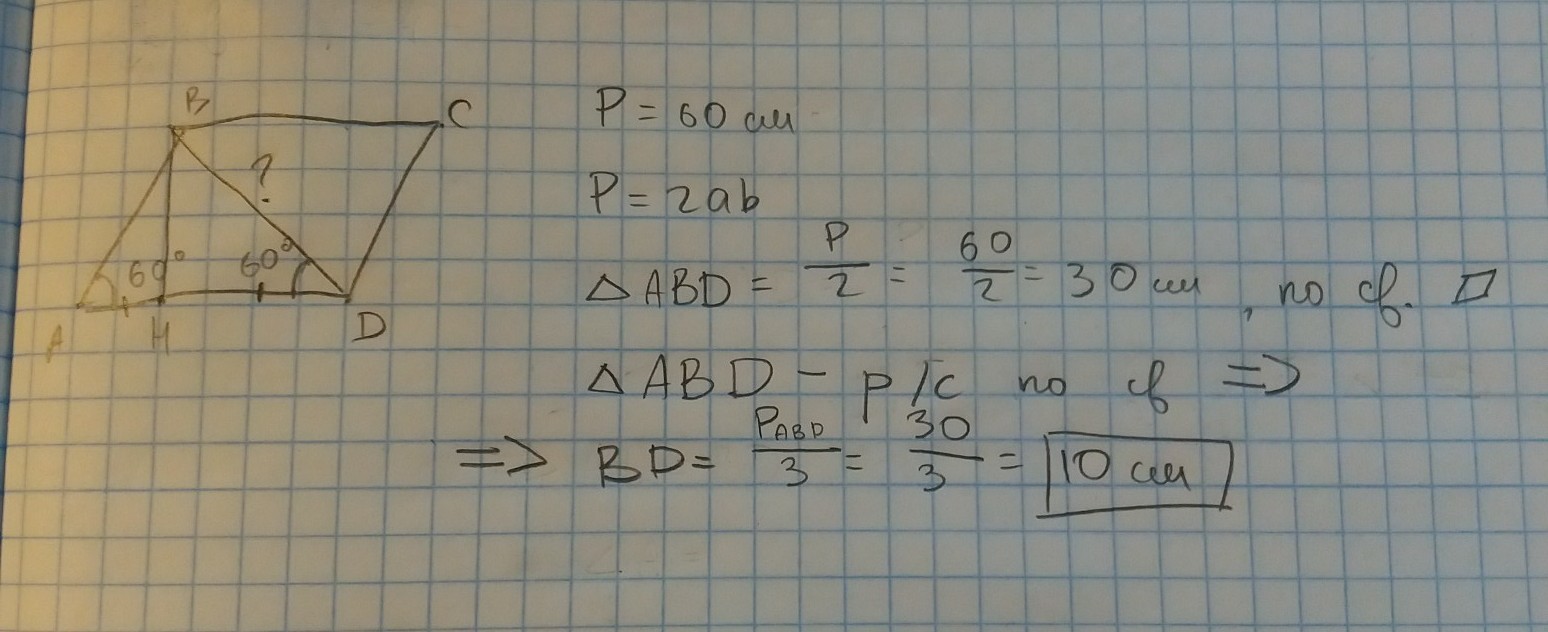 B C
?
60° 60°
A H D
P = 60 см
P = 2ab
△ABD = P/2 = 60/2 = 30 см, по св. ▱
△ABD – р/с по св =>
=> BD = P_ABD/3 = 30/3 = 10 см